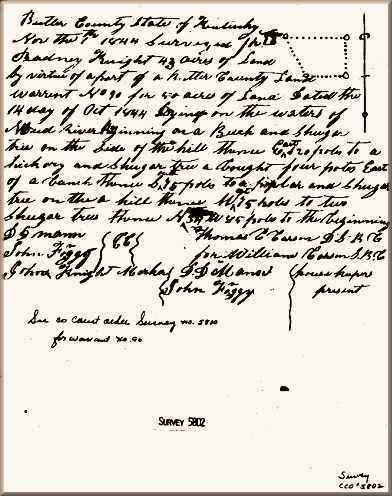 Butler County State of Kentucky
Nov the 1844 Surveyed for
Knight 43 acres of Land
by virtue of a part of a Butler County Land
Warrent No 90 for 50 acres of Land Dated the
14 day of Oct 1844 Lying on the waters of
Mud River Beginning on a Beech and Shugar
tree on the Side of the hill thence East 120 poles to a
hickory and Shugar tree a bought four poles East
of a branch thence poles to a poplar and Shugar
tree on the a hill thence W poles to two
Shugar trees thence N W 45 poles to the Beginning
D G mann CC Thomas C Carson D.S.B.C
John Foggy for William Carson S.B.C
John Knight Marker D.D. Mance
John Foggy present
See co court order Survey no. 5800
for warrant no. 90
SURVEY 5802
Survey
CCO# 5802